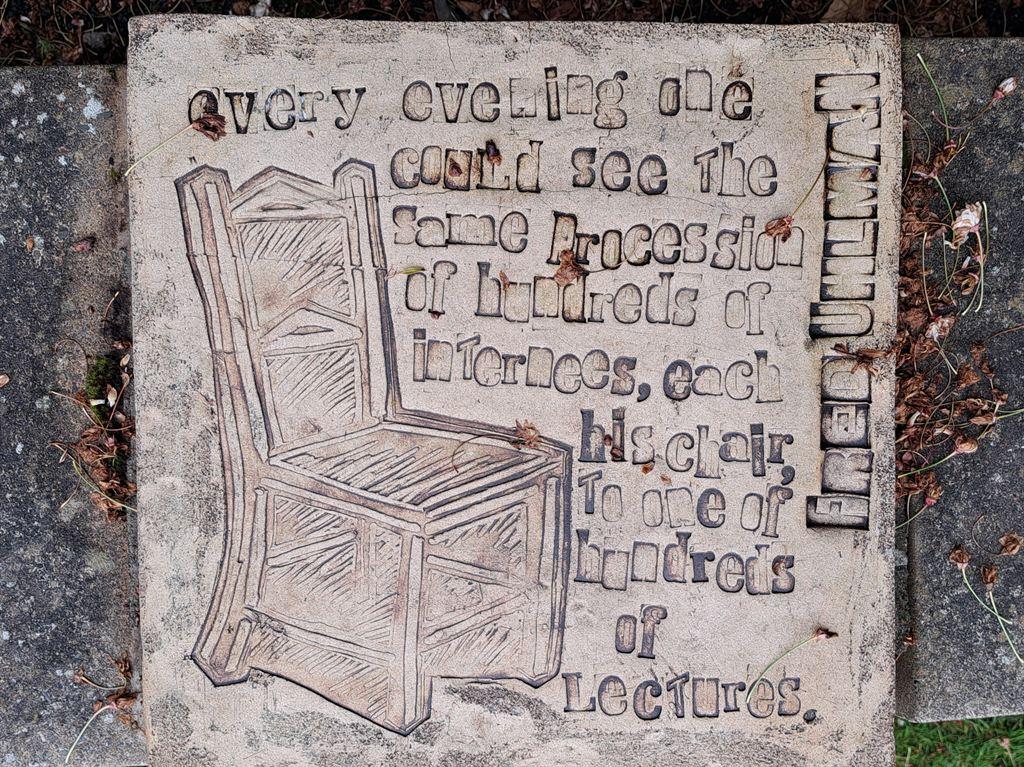 every evening one
could see the
same Procession
of hundreds of
internees, each
his chair,
To one of
hundreds
of
Lectures.
FRED UHLMAN